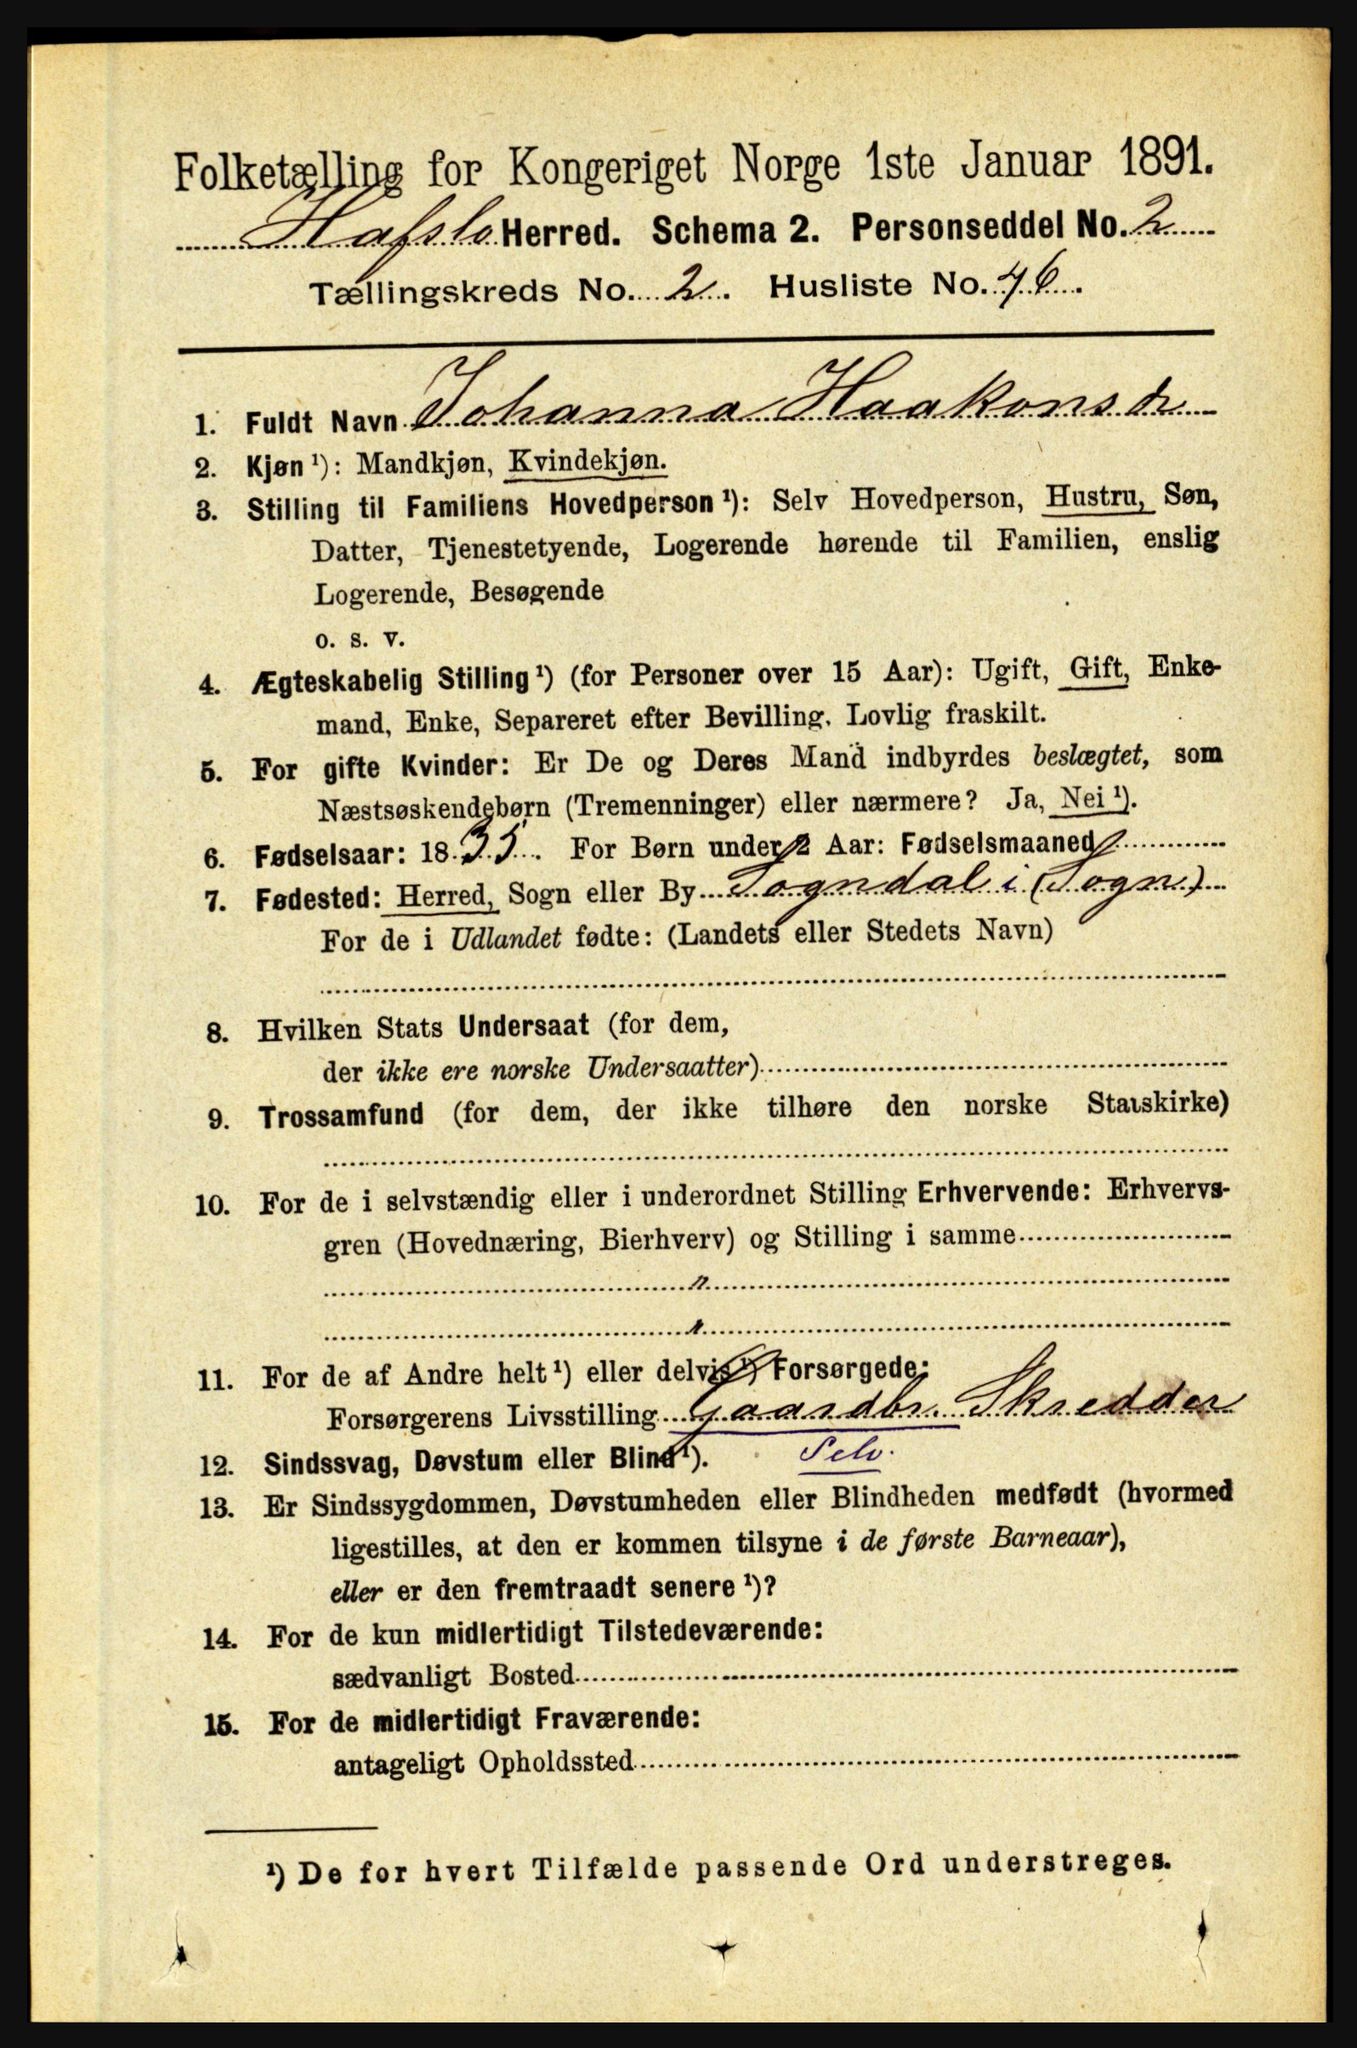 Folketælling for Kongeriget Norge 1ste Januar 1891.
Hafslo Herred. Schema 2. Personseddel No. 2
Tællingskreds No. 2. Husliste No. 46.
1. Fuldt Navn Johanna Haakonsdr
2. Kjøn ¹): Mandkjøn, Kvindekjøn.
3. Stilling til Familiens Hovedperson ¹): Selv Hovedperson, Hustru, Søn,
Datter, Tjenestetyende, Logerende hørende til Familien, enslig
Logerende, Besøgende
o. s. v.
4. Ægteskabelig Stilling ¹) (for Personer over 15 Aar): Ugift, Gift, Enke-
mand, Enke, Separeret efter Bevilling. Lovlig fraskilt.
5. For gifte Kvinder: Er De og Deres Mand indbyrdes beslægtet, som
Næstsøskendebørn (Tremenninger) eller nærmere? Ja, Nei ¹).
6. Fødselsaar: 1835. For Børn under 2 Aar: Fødselsmaaned
7. Fødested: Herred, Sogn eller By Sogndal i (Sogn)
For de i Udlandet fødte: (Landets eller Stedets Navn)
8. Hvilken Stats Undersaat (for dem,
der ikke ere norske Undersaatter)
9. Trossamfund (for dem, der ikke tilhøre den norske Statskirke)
10. For de i selvstændig eller i underordnet Stilling Erhvervende: Erhvervs-
gren (Hovednæring, Bierhverv) og Stilling i samme
"
"
11. For de af Andre helt ¹) eller delvis ¹) Forsørgede:
Forsørgerens Livsstilling Gaardbr. Skredder
12. Sindssvag, Døvstum eller Blind ¹). Selv.
13. Er Sindssygdommen, Døvstumheden eller Blindheden medfødt (hvormed
ligestilles, at den er kommen tilsyne i de første Barneaar),
eller er den fremtraadt senere ¹)?
14. For de kun midlertidigt Tilstedeværende:
sædvanligt Bosted
15. For de midlertidigt Fraværende:
antageligt Opholdssted
¹) De for hvert Tilfælde passende Ord understreges.